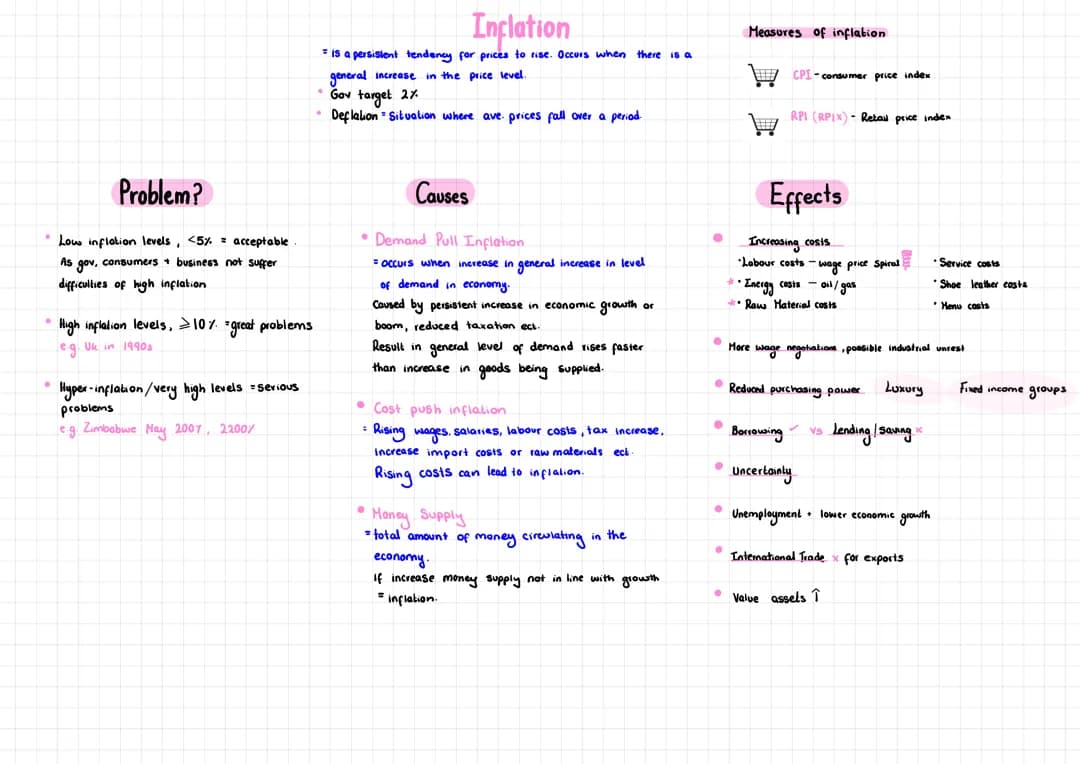 Inflation
= is a persistent tendency for prices to rise. Occurs when there is a
general increase in the price level.
• Gov target 2%
• Deflation = Situation where ave. prices fall over a period.
Measures of inflation
CPI - consumer price index
RPI (RPIX) - Retail price index
Problem?
• Low inflation levels, <5% = acceptable.
As gov, consumers + business not suffer
difficulties of high inflation
• High inflation levels, ≥10% =great problems
e.g. UK in 1990s
• Hyper-inflation/very high levels =serious
problems
e.g. Zimbabwe May 2007, 2200%
Causes
• Demand Pull Inflation
= occurs when increase in general increase in level
of demand in economy.
Caused by persistent increase in economic growth or
boom, reduced taxation ect.
Result in general level of demand rises faster
than increase in goods being supplied.
• Cost push inflation
= Rising wages, salaries, labour costs, tax increase,
increase import costs or raw materials ect.
Rising costs can lead to inflation.
• Money Supply
= total amount of money circulating in the
economy.
If increase money supply not in line with growth
= inflation.
Effects
• Increasing costs
• Labour costs - wage price spiral
* • Energy costs - oil/gas
* • Raw Material costs
• Service costs
• Shoe leather costs
• Menu costs
• More wage negotiations, possible industrial unrest
• Reduced purchasing power Luxury Fixed income groups
• Borrowing ✓ vs Lending/Saving ×
• Uncertainty
• Unemployment + lower economic growth
• International Trade × for exports
• Value assets ↑